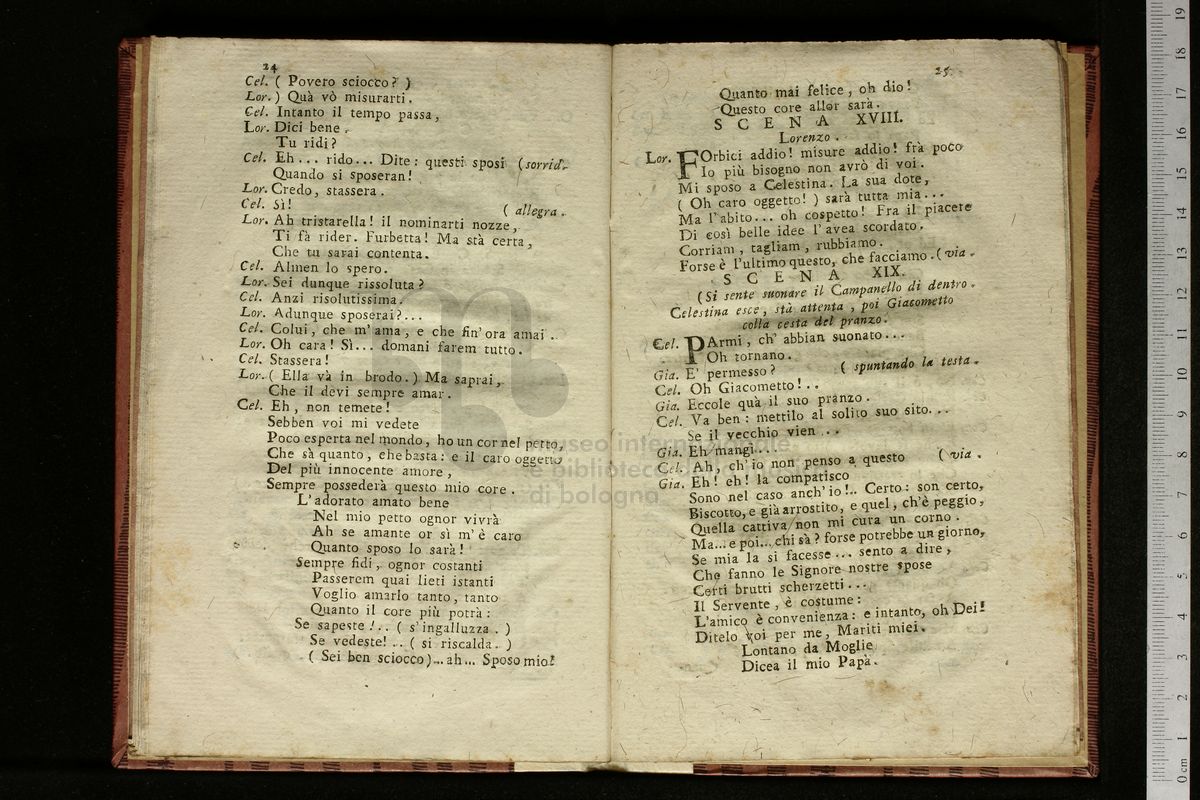 24
Cel. ( Povero sciocco? )
Lor. ) Quà vò misurarti.
Cel. Intanto il tempo passa,
Lor. Dici bene.
Tu ridi?
Cel. Eh... rido... Dite: questi sposi (sorrid.
Quando si sposeran!
Lor. Credo, stassera.
Cel. Sì! ( allegra.
Lor. Ah tristarella! il nominarti nozze,
Ti fà rider. Furbetta! Ma stà certa,
Che tu sarai contenta.
Cel. Almen lo spero.
Lor. Sei dunque rissoluta?
Cel. Anzi risolutissima.
Lor. Adunque sposerai?...
Cel. Colui, che m'ama, e che fin'ora amai..
Lor. Oh cara! Sì... domani farem tutto.
Cel. Stassera!
Lor. ( Ella và in brodo. ) Ma saprai,
Che il devi sempre amar.
Cel. Eh, non temete!
Sebben voi mi vedete
Poco esperta nel mondo, ho un cor nel petto,
Che sà quanto, che basta: e il caro oggetto
Del più innocente amore,
Sempre possederà questo mio core.
L'adorato amato bene
Nel mio petto ognor vivrà
Ah se amante or sì m'è caro
Quanto sposo lo sarà!
Sempre fidi, ognor costanti
Passerem quai lieti istanti
Voglio amarlo tanto, tanto
Quanto il core più potrà:
Se sapeste!.. ( s'ingalluzza. )
Se vedeste!.. ( si riscalda. )
( Sei ben sciocco)...ah... Sposo mio!
25
Quanto mai felice, oh dio!
Questo core allor sarà.
SCENA XVIII.
Lorenzo.
Lor. FOrbici addio! misure addio! frà poco
Io più bisogno non avrò di voi.
Mi sposo a Celestina. La sua dote,
( Oh caro oggetto! ) sarà tutta mia...
Ma l'abito... oh cospetto! Fra il piacere
Di così belle idee l'avea scordato.
Corriam, tagliam, rubbiamo.
Forse è l'ultimo questo, che facciamo. ( via.
SCENA XIX.
(Si sente suonare il Campanello di dentro.
Celestina esce, stà attenta, poi Giacometto
colla cesta del pranzo.
Cel. PArmi, ch'abbian suonato...
Oh tornano.
Gia. E' permesso? ( spuntando la testa.
Cel. Oh Giacometto!..
Gia. Eccole quà il suo pranzo.
Cel. Va ben: mettilo al solito suo sito...
Se il vecchio vien...
Gia. Eh mangi...
Cel. Ah, ch'io non penso a questo ( via.
Gia. Eh! eh! la compatisco
Sono nel caso anch'io!.. Certo: son certo,
Biscotto, e già arrostito, e quel, ch'è peggio,
Quella cattiva non mi cura un corno.
Ma... e poi... chi sà? forse potrebbe un giorno,
Se mia la si facesse... sento a dire,
Che fanno le Signore nostre spose
Certi brutti scherzetti...
Il Servente, è costume:
L'amico è convenienza: e intanto, oh Dei!
Ditelo voi per me, Mariti miei.
Lontano da Moglie
Dicea il mio Papà.
museo internazionale
e biblioteca della musica
di bologna
0 cm 1 2 3 4 5 6 7 8 9 10 11 12 13 14 15 16 17 18 19